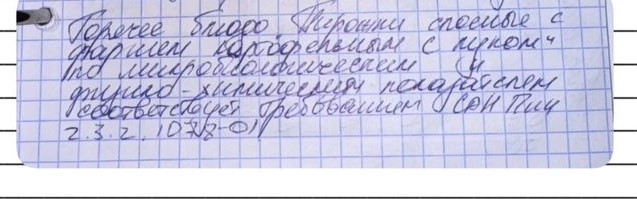 Горячее блюдо. Пирожки слоеные с
фаршем картофельным с луком"
по микробиологическим и
физико-химическим показателем
соответствует требованием САН Пин
2.3.2. 1078-01